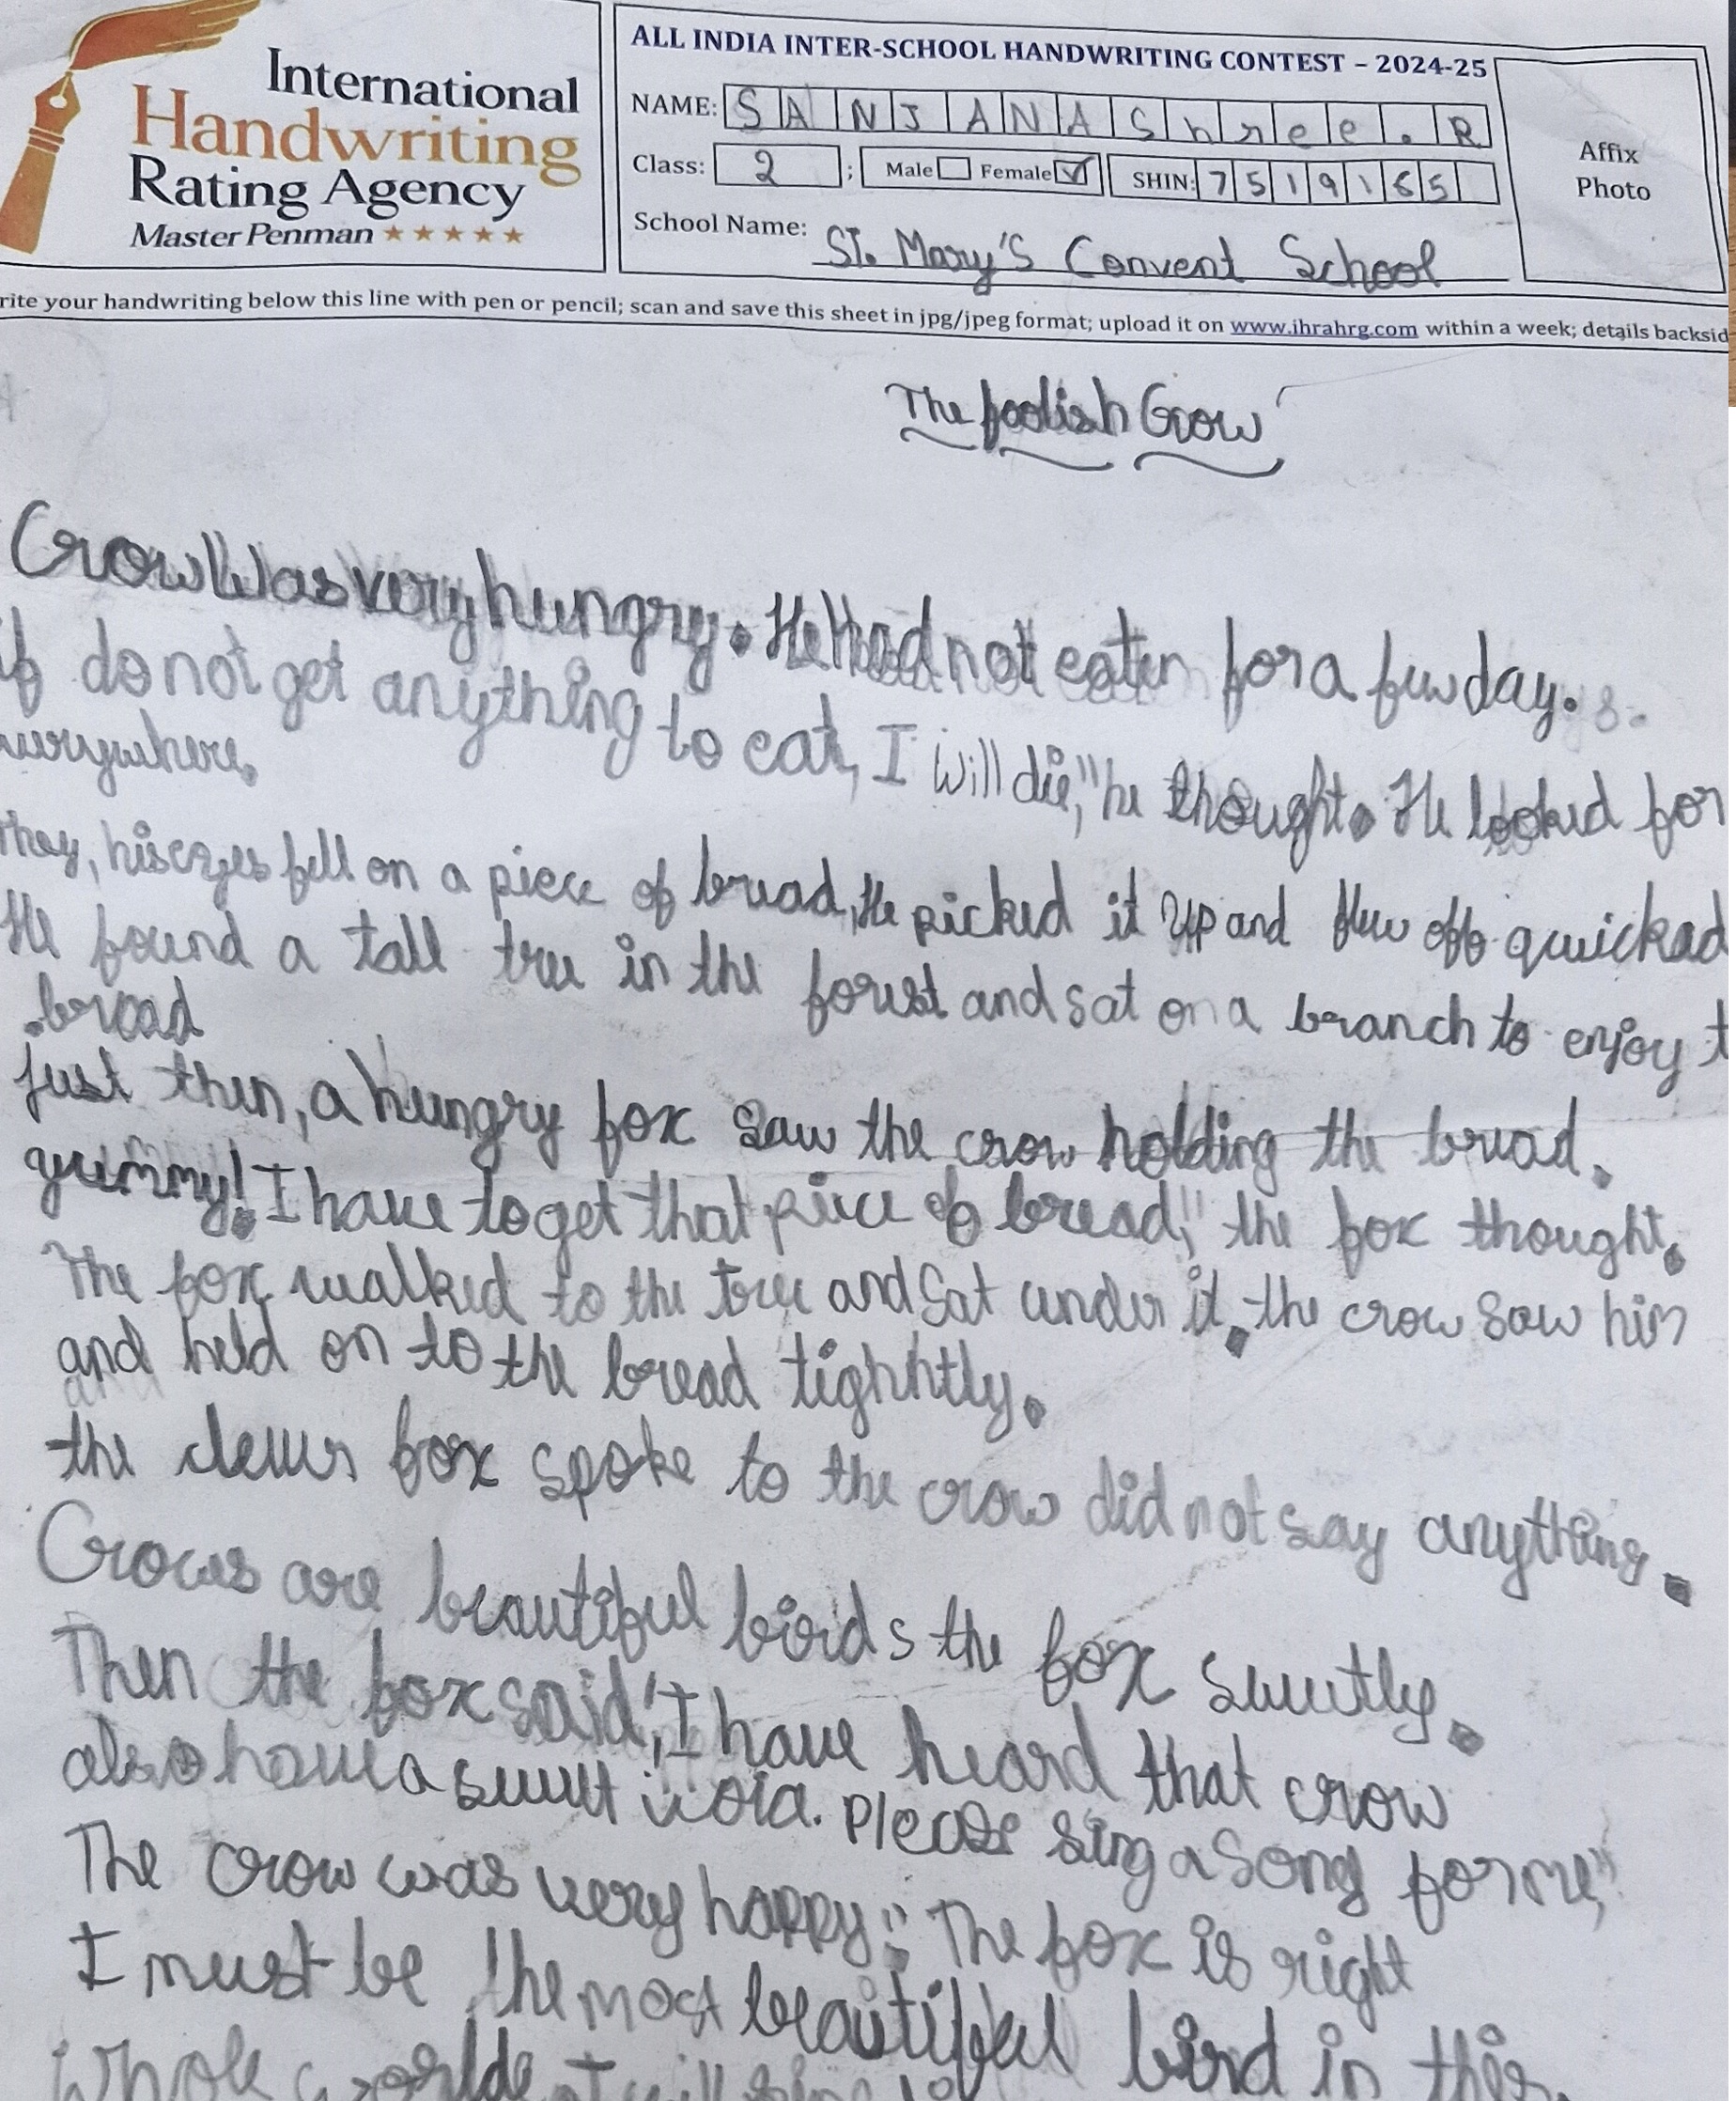 International
Handwriting
Rating Agency
Master Penman ★★★★★
ALL INDIA INTER-SCHOOL HANDWRITING CONTEST – 2024-25
NAME: SANJANAShree.R
Class: 2 ; Male Female ✓ SHIN: 7519165
School Name: ST. Mary'S Convent School
Affix
Photo
rite your handwriting below this line with pen or pencil; scan and save this sheet in jpg/jpeg format; upload it on www.ihrahrg.com within a week; details backsid
The foolish Crow
Crow Was very hungry. He Had not eaten for a few day.s.
if do not get anything to eat, I will die," he thought. He looked for
everywhere.
They, his eyes fell on a piece of bread, He picked it up and flew off quickad
He found a tall tree in the forest and sat on a branch to enjoy t
.bread
Just then, a hungry fox saw the crow holding the bread.
yummy! I have to get that piece of bread," the fox thought.
The fox walked to the tree and Sat under it. the crow Saw him
and held on to the bread tighhtly.
the clever fox spoke to the crow did not say anything.
Crows are beautiful birds the fox sweetly.
Then the fox said, "I have heard that crow
also have a sweet Please sing a Song for me,"
The crow was very happy." The fox is right
I must be the most beautiful bird in this
Whole I will